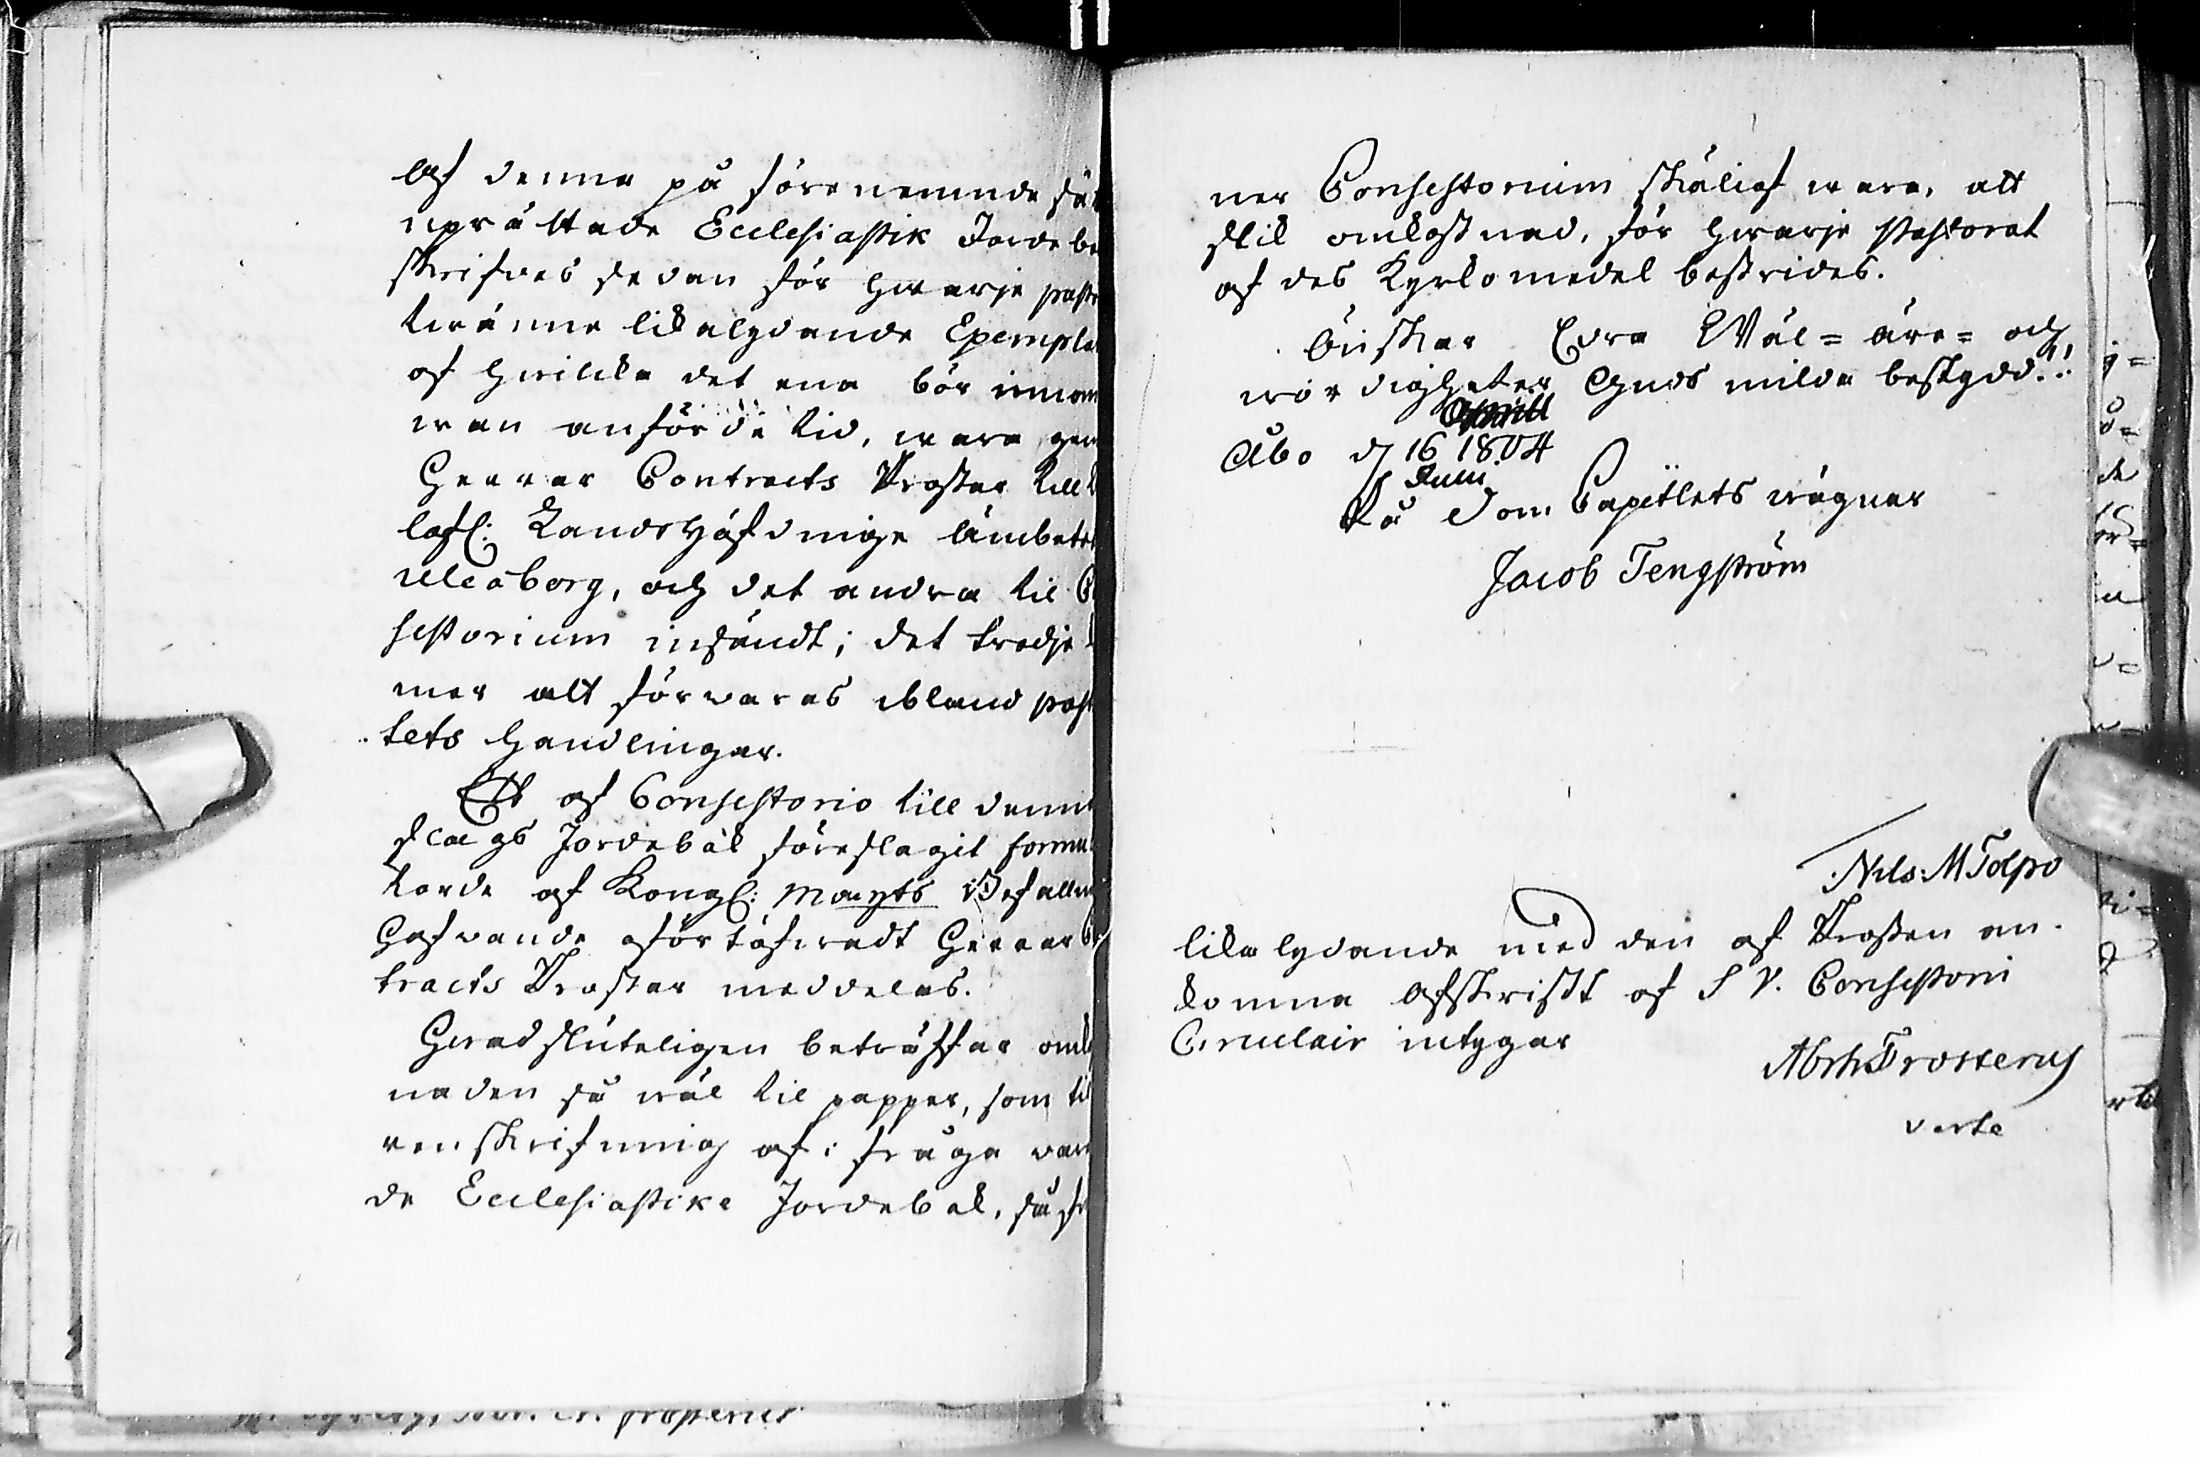 Af denna på förenemnde sät
uprättade Ecclesiastik Jordebo
skrifves sedan för hwarje past
twänne likalydande Exempla
af hwilka det ena bör innan
wan anförde tid, wara gen
Herrar Contracts Prostar till
lofl: Landshöfdinge ämbetet
Uleåborg, och det andra til C
sistorium insändt; det tredje
mer att förwaras ibland past
tets Handlingar.
Ett af Consistorio till denna
slags Jordebok föreslagit formu
lorde af Kongl: Mayts Befalln
Hafwande oförtöfwadt Herrar C
tracts Prostar meddelas.
Hwad sluteligen beträffar omk
naden så wäl til papper, som til
renskrifning af i fråga war
de Ecclesiastike Jordebok, så fi
ner Consistorium skäligt wara, att
slik omkostnad, för hwarje Pastorat
af des Kyrkomedel bestrides.
Önskar Edra Wäl= äre= och
wördigheter Guds milda beskydd!
Åbo d 16 1804
Juni
På Dom Capitlets wägnar
Jacob Tengström
Nils: M Tolpo
lika lydande med den af Prosten an-
komna Afskrift af S V. Consistorii
Circulair intygar
Abrh Frosterus
verte